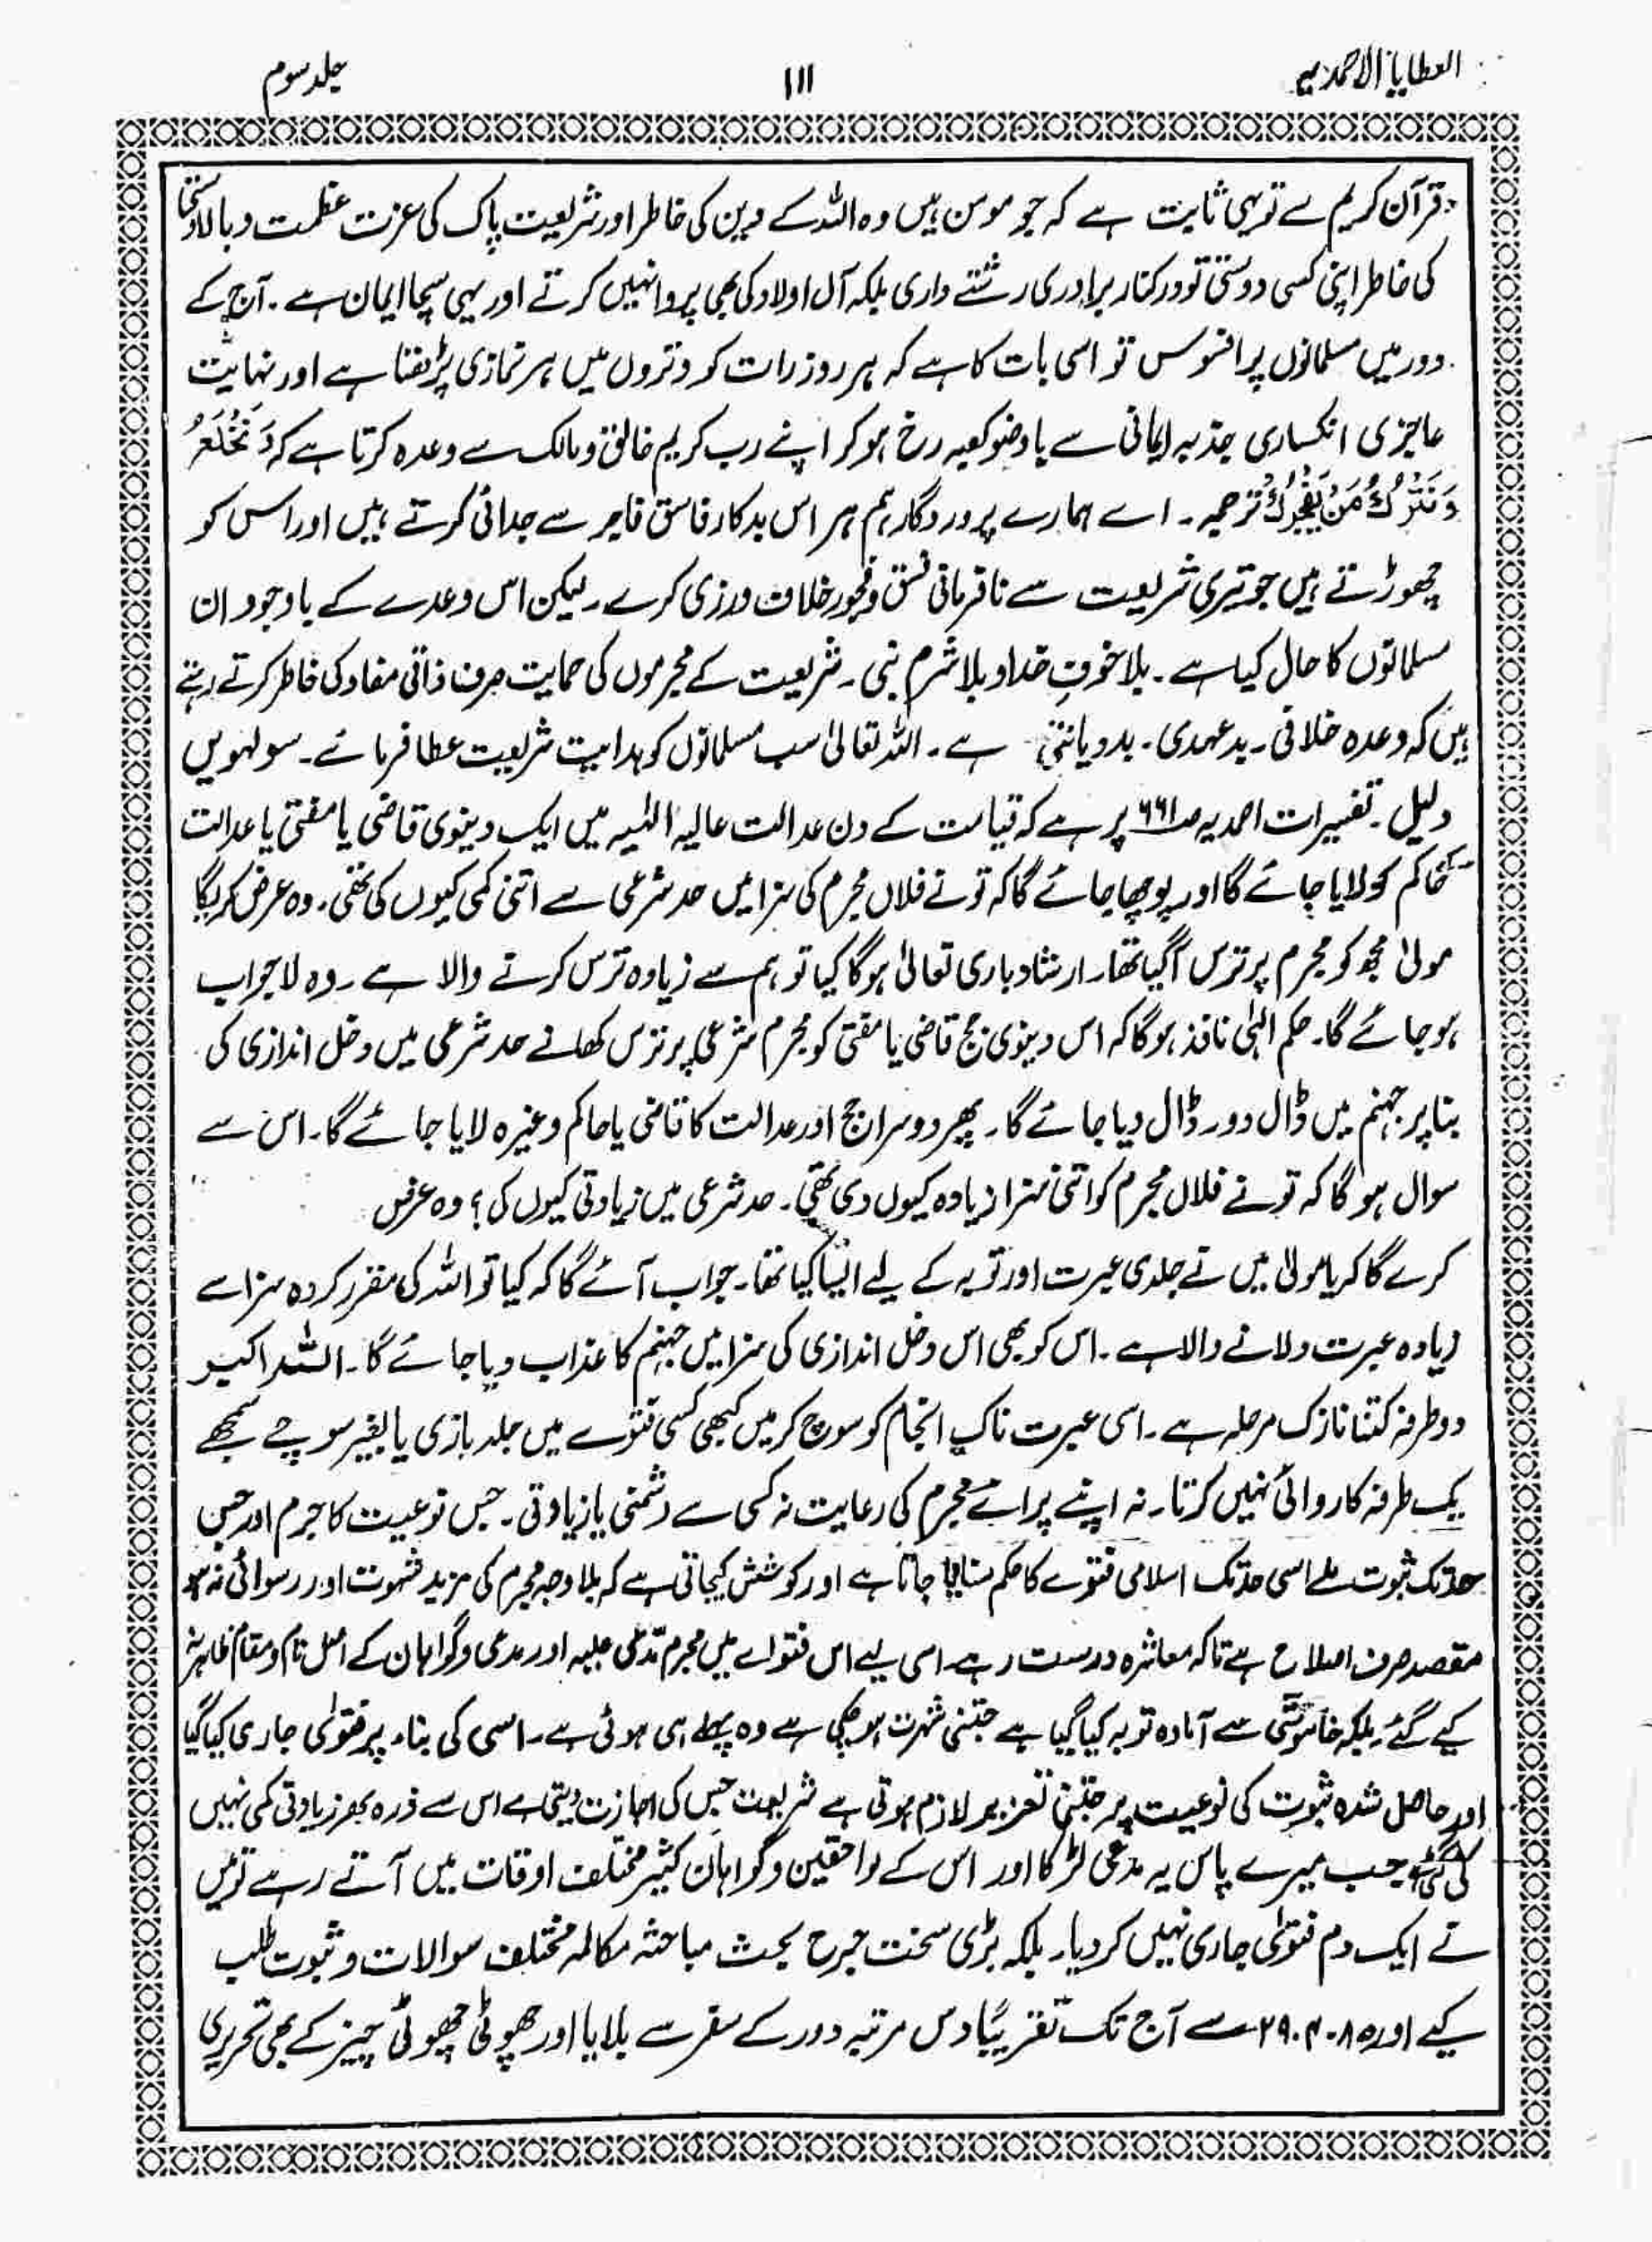 العطایا الاحمدیہ
۱۱۱
جلد سوم
قرآن کریم سے تو یہی ثابت ہے کہ جو مومن ہیں وہ اللہ کے دین کی خاطر اور شریعت پاک کی عزت عظمت و بالادستی
کی خاطر اپنی کسی دوستی تو درکنار برادری رشتے داری بلکہ آل اولاد کی بھی پروا نہیں کرتے اور یہی سچا ایمان ہے۔ آج کے
دور میں مسلمانوں پر افسوس تو اسی بات کا ہے کہ ہر روز رات کو وتروں میں ہر نمازی پڑھتا ہے اور نہایت
عاجزی انکساری جذبہ ایمانی سے باوضو کعبہ رخ ہو کر اپنے رب کریم خالق و مالک سے وعدہ کرتا ہے کہ وَنَخْلَعُ
وَنَتْرُكُ مَنْ يَفْجُرُكَ ترجمہ۔ اے ہمارے پروردگار ہم ہر اس بدکار فاسق فاجر سے جدائی کرتے ہیں اور اس کو
چھوڑتے ہیں جو تیری شریعت سے نافرمانی فسق و فجور خلاف ورزی کرے۔ لیکن اس وعدے کے باوجود ان
مسلمانوں کا حال کیا ہے۔ بلا خوفِ خدا و بلا شرم نبی۔ شریعت کے مجرموں کی حمایت صرف ذاتی مفاد کی خاطر کرتے رہتے
ہیں کہ وعدہ خلافی۔ بدعہدی۔ بددیانتی ہے۔ اللہ تعالیٰ سب مسلمانوں کو ہدایت شریعت عطا فرمائے۔ سولہویں
دلیل۔ تفسیرات احمدیہ صـ۶۶۱ پر ہے کہ قیامت کے دن عدالت عالیہ الٰہیہ میں ایک دینوی قاضی یا مفتی یا عدالت
کے حاکم کو لایا جائے گا اور پوچھا جائے گا کہ تو نے فلاں مجرم کی سزا میں حد شرعی سے اتنی کمی کیوں کی تھی۔ وہ عرض کریگا
مولیٰ مجھ کو مجرم پر ترس آگیا تھا۔ ارشاد باری تعالیٰ ہوگا کیا تو ہم سے زیادہ ترس کرنے والا ہے۔ وہ لاجواب
ہو جائے گا۔ حکم الٰہی نافذ ہوگا کہ اس دینوی جج قاضی یا مفتی کو مجرم شرعی پر ترس کھانے حد شرعی میں دخل اندازی کی
بنا پر جہنم میں ڈال دو۔ ڈال دیا جائے گا۔ پھر دوسرا جج اور عدالت کا قاضی یا حاکم وغیرہ لایا جائے گا۔ اس سے
سوال ہو گا کہ تو نے فلاں مجرم کو اتنی سزا زیادہ کیوں دی تھی۔ حد شرعی میں زیادتی کیوں کی؟ وہ عرض
کرے گا کہ یا مولیٰ میں نے جلدی عبرت اور توبہ کے لیے ایسا کیا تھا۔ جواب آئے گا کہ کیا تو اللہ کی مقرر کردہ سزا سے
زیادہ عبرت دلانے والا ہے۔ اس کو بھی اس دخل اندازی کی سزا میں جہنم کا عذاب دیا جائے گا۔ اللہ اکبر
دو طرفہ کتنا نازک مرحلہ ہے۔ اسی عبرت ناک انجام کو سوچ کر میں کبھی کسی فتوے میں جلد بازی یا بغیر سوچے سمجھے
یک طرفہ کاروائی نہیں کرتا۔ نہ اپنے پرائے مجرم کی رعایت نہ کسی سے دشمنی یا زیادتی۔ جس نوعیت کا جرم اور جس
حد تک ثبوت ملے اسی حد تک اسلامی فتوے کا حکم سنایا جاتا ہے اور کوشش کیجاتی ہے کہ بلا وجہ مجرم کی مزید شہرت اور رسوائی نہ ہو
مقصد صرف اصلاح ہے تاکہ معاشرہ درست رہے۔ اسی لیے اس فتواے میں مجرم مدعی علیہ اور مدعی و گواہان کے اصل نام و مقام ظاہر نہ
کیے گئے۔ بلکہ خاموشی سے آمادہ توبہ کیا گیا ہے جتنی شہرت ہو چکی ہے وہ پہلے ہی ہوئی ہے۔ اسی کی بناء پر فتویٰ جاری کیا گیا
اور حاصل شدہ ثبوت کی نوعیت پر جتنی تعزیر لازم ہوتی ہے شریعت جس کی اجازت دیتی ہے اس سے ذرہ بھر زیادتی کمی نہیں
کی گئی۔ جب میرے پاس یہ مدعی لڑکا اور اس کے لواحقین و گواہان کثیر مختلف اوقات میں آتے رہے تو میں
نے ایک دم فتویٰ جاری نہیں کر دیا۔ بلکہ بڑی سخت جرح بحث مباحثہ مکالمہ مختلف سوالات و ثبوت طلب
کیے اور ۸۵۔۴۔۲۹ سے آج تک تقریبًا دس مرتبہ دور کے سفر سے بلایا اور چھوٹی چھوٹی چیز کے بھی تحریری